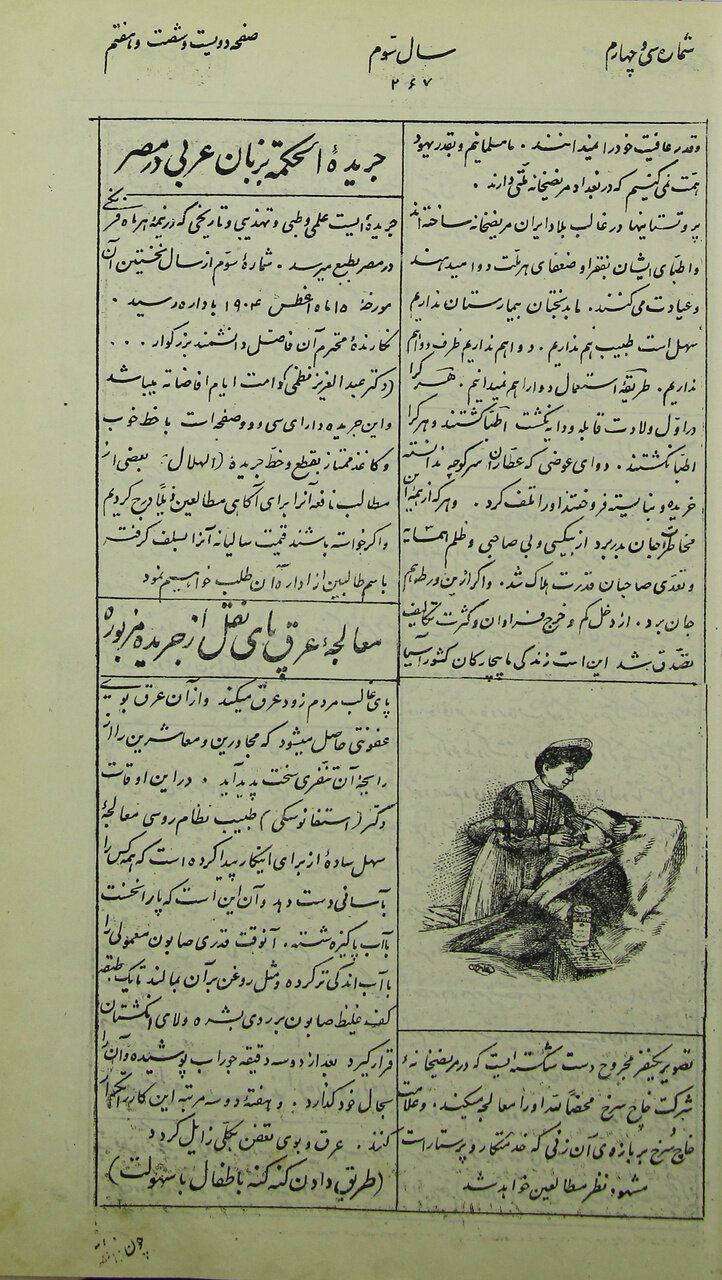 شماره سی و چهارم
سال سوم
صفحه دویست و شصت و هفتم
۲۶۷
و قدر عافیت خود را نمیدانند . ما مسلمانیم و بقدر یهود
همت نمی‌کنیم که در بغداد مریضخانه ملتی دارند .
پروتستانیها در غالب بلاد ایران مریضخانه ساخته‌اند
و اطبای ایشان بفقرا و ضعفای هر ملت دوا میدهند
و عیادت می‌کنند . ما بدبختان بیمارستان نداریم
سهل است طبیب هم نداریم . دوا هم نداریم ظرف دوا هم
نداریم . طریقهٔ استعمال دوا را هم نمیدانیم . هر کرا
در اول ولادت قابله و دایه نکشت اطبا کشتند و هر کرا
اطبا نکشتند . دوای عوضی که عطاران سر کوچه ندانسته
خریده و نبایسته فروختند او را تلف کرد . و هر که از همهٔ این
مخاطرات جان بدر برد از بیکسی و بی صاحبی و ظلم همسایه
و تعدی صاحبان قدرت هلاک شد . و اگر ازین ورطه هم
جان برد . از دخل کم و خرج فراوان و کثرت تکالیف
تصدق شد این است زندگی ما بیچارگان کشور آسیا
تصویر یکنفر مجروح دست شکسته ایست که در مریضخانهٔ
شرکت خاج سرخ محضاً لله او را معالجه میکنند . و علامت
خاج سرخ بر بازوی آن زنی که خدمتکار و پرستار است
مشهود نظر مطالعین خواهد شد
جریدهٔ الحکمة بزبان عربی در مصر
جریده‌ایست علمی و طبی و تهذیبی و تاریخی که در نیمهٔ هر ماه فرنگی
در مصر بطبع میرسد . شمارهٔ سوم از سال نخستین آن
مورخهٔ ۱۵ ماه اغطس ۱۹۰۴ باداره رسید .
نگارندهٔ محترم آن فاضل دانشمند بزرگوار ...
(دکتر عبد العزیز نظمی) دامت ایام افاضاته میباشد
و این جریده دارای سی و دو صفحه است با خط خوب
و کاغذ ممتاز بقطع و خط جریدهٔ (الهلال) بعضی از
مطالب نافعه آنرا برای آگاهی مطالعین ذیلاً درج کردیم
و اگر خواسته باشند قیمت سالیانه آنرا بسلف گرفته
باسم طالبین از اداره آن طلب خواهیم نمود
معالجهٔ عرق پای نقل از جریده مزبوره
پای غالب مردم زود عرق میکند و از آن عرق بویی
عفونتی حاصل میشود که مجاورین و معاشرین را از
رایحهٔ آن تنفری سخت پدید آید . در این اوقات
دکتر (استفانوسکی) طبیب نظام روسی معالجهٔ
سهل سادهٔ از برای اینکار پیدا کرده است که همه کس را
بآسانی دست دهد و آن این است که پا را نخست
باآب پاکیزه شسته . آنوقت قدری صابون معمولی را
باآب اندکی تر کرده و مثل روغن بر آن بمالند تا یک طبقه
کف غلیظ صابون بر روی بشره و لای انگشتان
قرار گیرد بعد از دو سه دقیقه جوراب پوشیده و آن را
بحال خود گذارد . و هفتهٔ دو سه مرتبه این کار را تکرار
کنند . عرق و بوی تعفن بکلی زایل گردد
(طریق دادن کنه کنه باطفال با سهولت)
چون